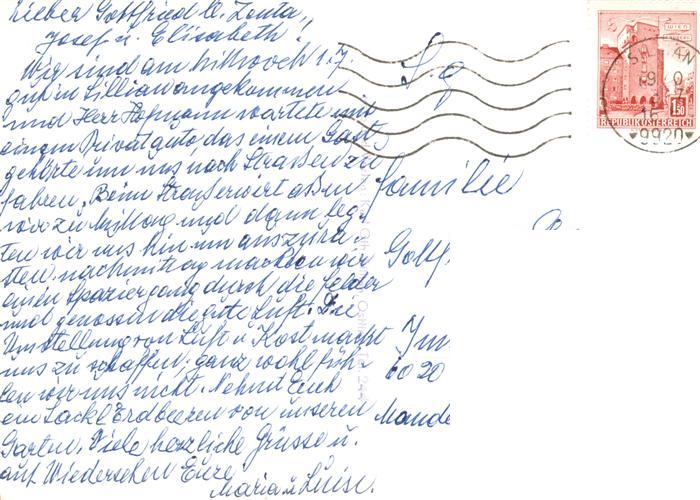 Lieber Gottfried u. Zenta,
Josef u. Elisabeth!
Wir sind am Mittwoch 1.7.
gut in Sillian angekommen
und Herr Hofmann wartete mit
einem Privatauto, das einem Gast
gehörte um uns nach Strassen zu
fahren. Beim Strasserwirt assen
wir zu Mittag und dann leg-
ten wir uns hin um auszura-
sten. nachmittag machten wir
einen Spaziergang durch die Felder
und genossen die gute Luft. Die
Umstellung von Luft u. Kost macht
uns zu schaffen, ganz wohl füh-
len wir uns nicht. Nehmt Euch
ein Sackl Erdbeeren von unseren
Garten. Viele herzliche Grüsse u.
auf Wiedersehen Eure
Maria u. Luise.
Familie
Gottf
Inn
6020
REPUBLIK ÖSTERREICH
1.50
9920